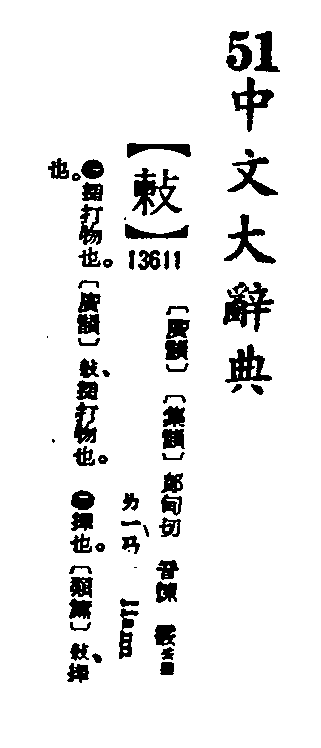 51
中文大辭典
【㪝】
13611
〔廣韻〕〔集韻〕郎甸切 音練 霰去聲
ㄌㄧㄢˋ liann
㊀搥打物也。〔廣韻〕㪝、搥打物也。㊁擇也。〔類篇〕㪝、擇
也。